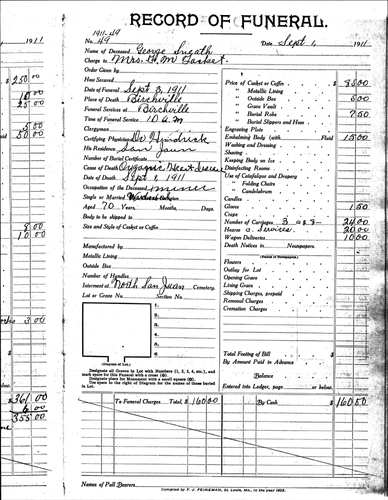 1911
250 00
10 00
25 00
5 00
50 00
8 00
10 00
3 00
361 00
6 00
355 00
RECORD OF FUNERAL.
1911-49
No. 49
Date Sept 1, 1911
Name of Deceased George
Charge to Mrs. G. M.
Order Given by
How Secured
Date of Funeral Sept 3, 1911
Place of Death Birchville
Funeral Services at Birchville
Time of Funeral Service 10 A.M
Clergyman
Certifying Physician Dr.
His Residence San Juan
Number of Burial Certificate
Cause of Death Organic Heart Disease
Date of Death Sept 1, 1911
Occupation of the Deceased miner
Single or Married Religion
Aged 70 Years, Months, Days.
Body to be shipped to
Size and Style of Casket or Coffin
Manufactured by
Metallic Lining
Outside Box
Number of Handles
Interment at North San Juan Cemetery.
Lot or Grave No. Section No.
1.
2.
3.
4.
5.
6
(Diagram of Lot.)
Designate all Graves in Lot with Numbers (1, 2, 3, 4, etc.), and
mark space for this Funeral with a cross
Designate place for Monument with a small square
Use space to the right of Diagram for the names of those buried
in Lot.
Price of Casket or Coffin $ 85 00
" Metallic Lining
" Outside Box 5 00
" Grave Vault
" Burial Robe 7 50
" Burial Slippers and Hose
Engraving Plate
Embalming Body (with Fluid 15 00
Washing and Dressing
Shaving
Keeping Body on Ice
Disinfecting Rooms
Use of Catafalque and Drapery
" Folding Chairs
" Candelabrum
Candles
Gloves 1 50
Crape
Number of Carriages 3 @ 8- 24 00
Hearse & Services. 20 00
Wagon Deliveries 10 00
Death Notices in Newspapers.
(Names of Newspapers.)
Flowers
Outlay for Lot
Opening Grave
Lining Grave
Shipping Charges, prepaid
Removal Charges
Cremation Charges
Total Footing of Bill $
By Amount Paid in Advance
Balance
Entered into Ledger, page or below.
To Funeral Charges Total, $ 160 00 By Cash $ 160 50
Names of Pall Bearers
Compiled by F. J. FEINEMAN, St. Louis, Mo., in the year 1903.